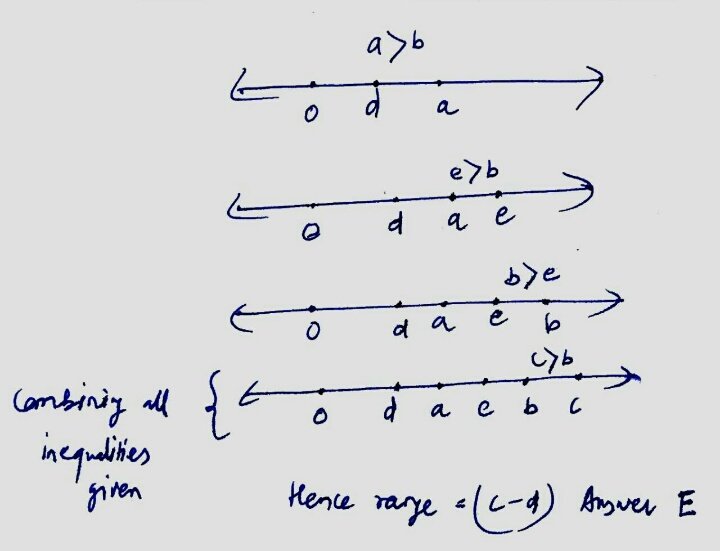 a>b
0 d a
e>b
0 d a e
b>e
0 d a e b
c>b
0 d a e b c
Combining all
inequalities
given
Hence range = (c-d) Answer E